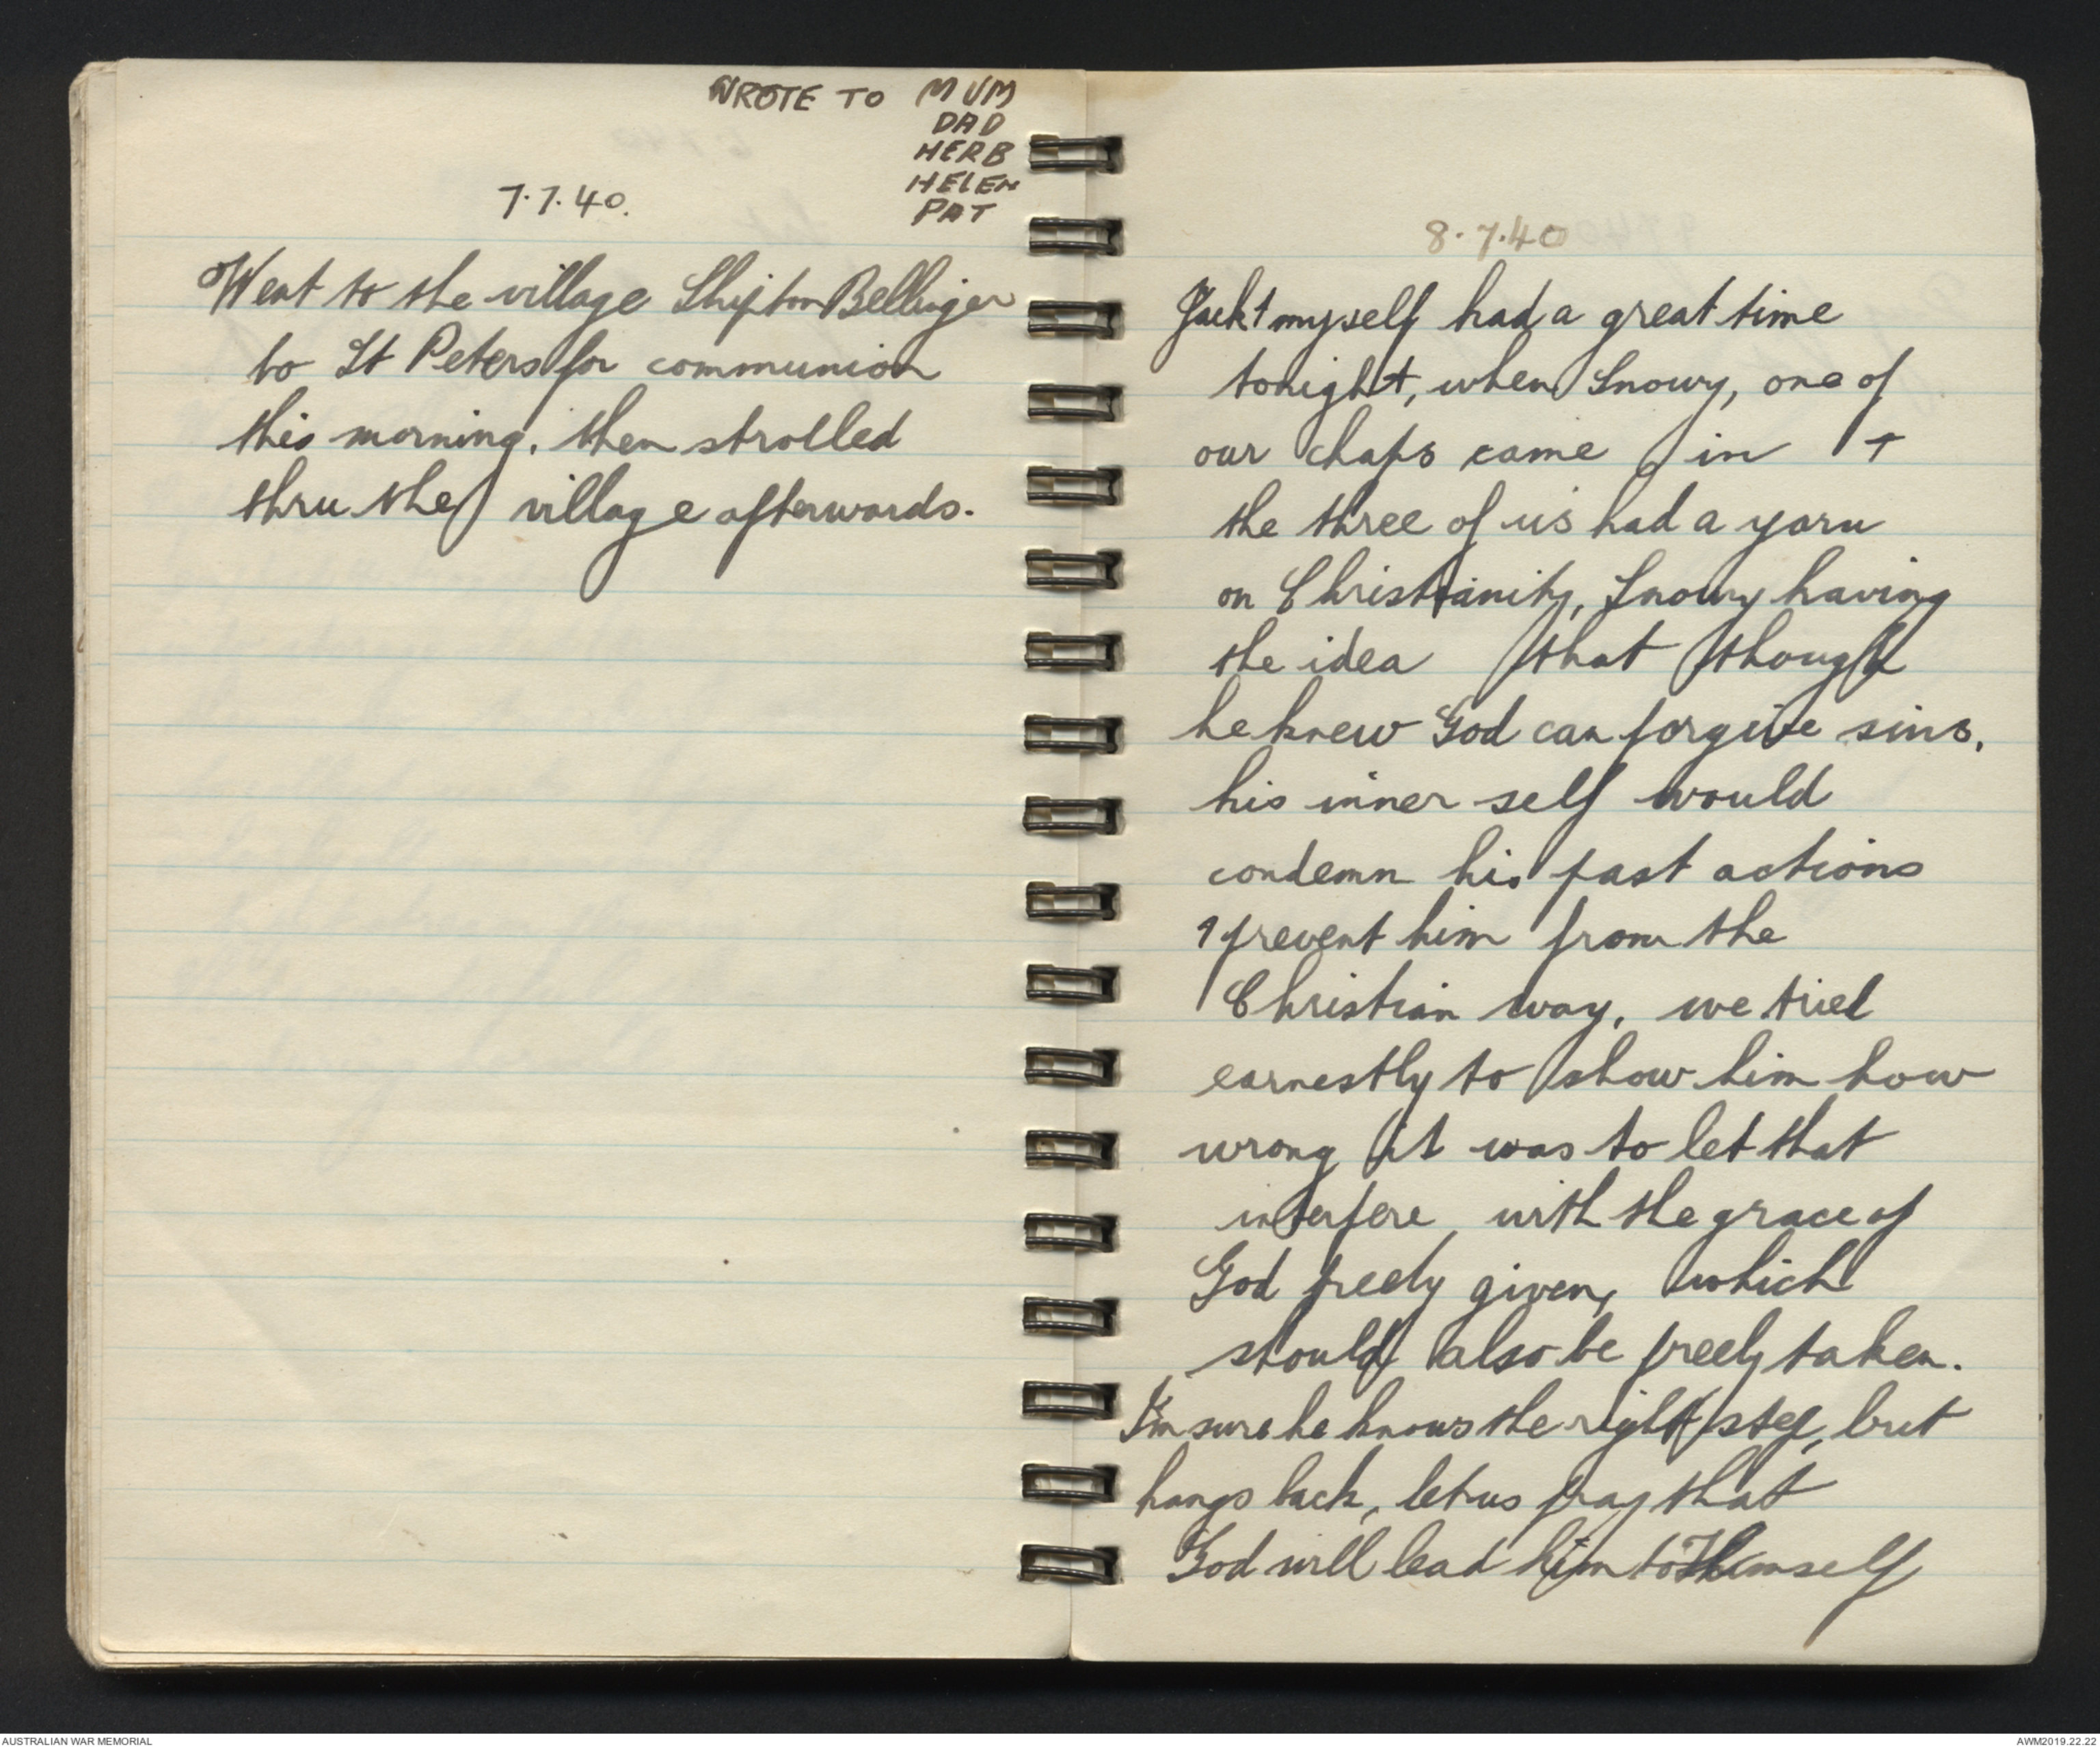 WROTE TO MUM
DAD
HERB
HELEN
PAT
7.7.40.
Went to the village Shipton Bellinger
to St Peters for communion
this morning. then strolled
thru the village afterwards.
8.7.40
Jack + myself had a great time
tonight, when Snowy, one of
our chaps came in +
the three of us had a yarn
on Christianity, Snowy having
the idea that though
he knew God can forgive sins,
his inner self would
condemn his past actions
+ prevent him from the
Christian way, we tried
earnestly to show him how
wrong it was to let that
interfere, with the grace of
God freely given, which
should also be freely taken.
I'm sure he knows the right step, but
hangs back, let us pray that
God will lead him to Himself
AUSTRALIAN WAR MEMORIAL
AWM2019.22.22